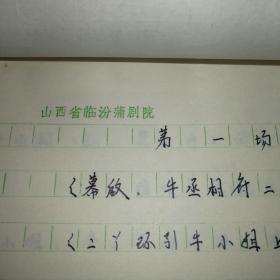 山西省临汾蒲剧院
第一场
(幕启,牛丞相府二
(二丫环引牛小姐上